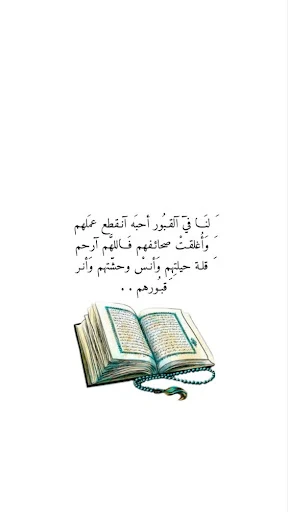 َ لنَـا فيَ آلقبُـور أحبَه آنـقطع عمَلهم
َ وَأُغلقتْ صحَائفهم فَـاللهَّم آرحم
َ قلـة حيلتِهِم وَأنسْ وحشّتهم وَأنر
َ قبُـورهم . .